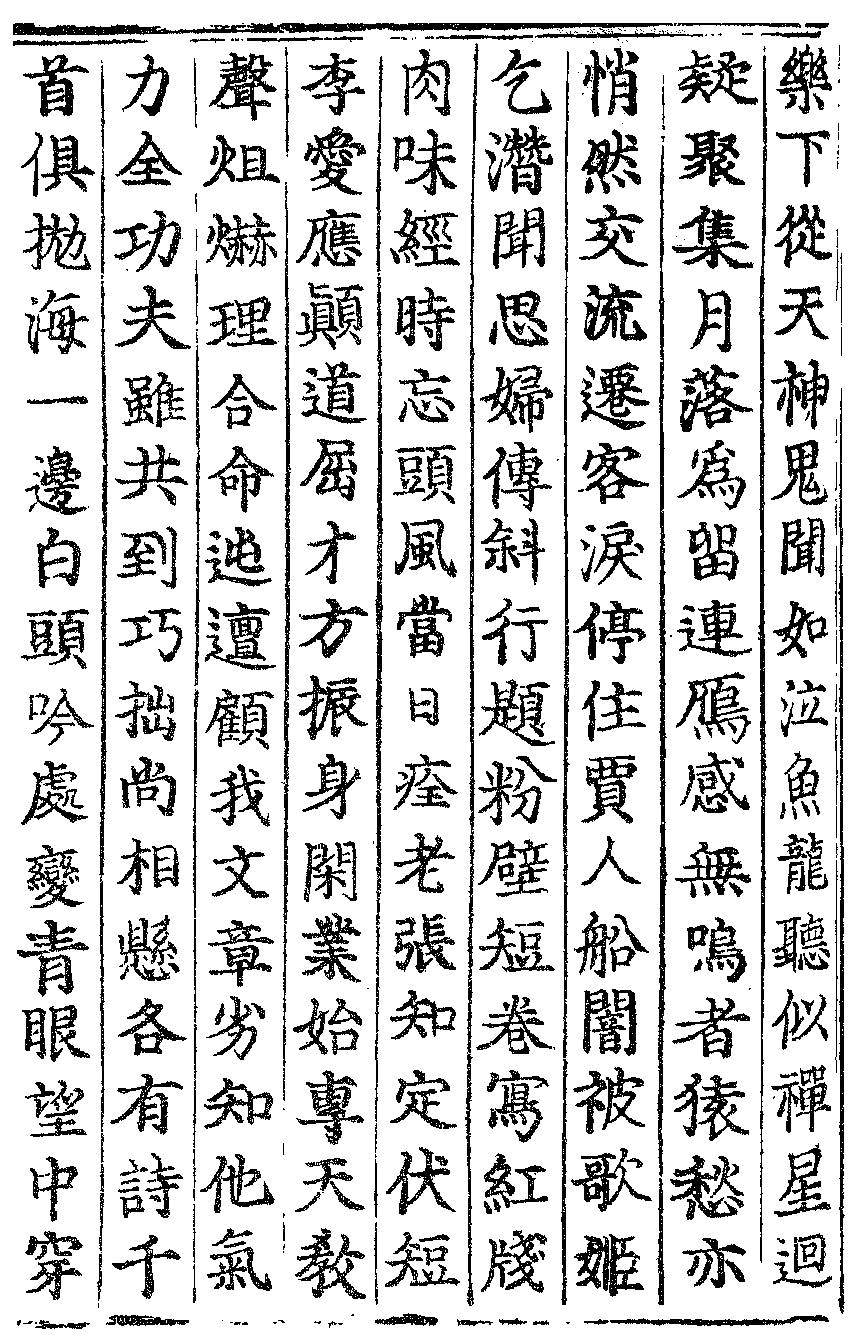 樂下從天神鬼聞如泣魚龍聽似禪星迴
疑聚集月落爲留連鴈感無鳴者猿愁亦
悄然交流遷客淚停住賈人船闇被歌姬
乞潛聞思婦傳斜行題粉壁短卷寫紅牋
肉味經時忘頭風當日痊老張知定伏短
李愛應顚道屈才方振身閑業始專天教
聲烜爀理合命迍邅顧我文章劣知他氣
力全功夫雖共到巧拙尚相懸各有詩千
首俱拋海一邊白頭吟處變青眼望中穿